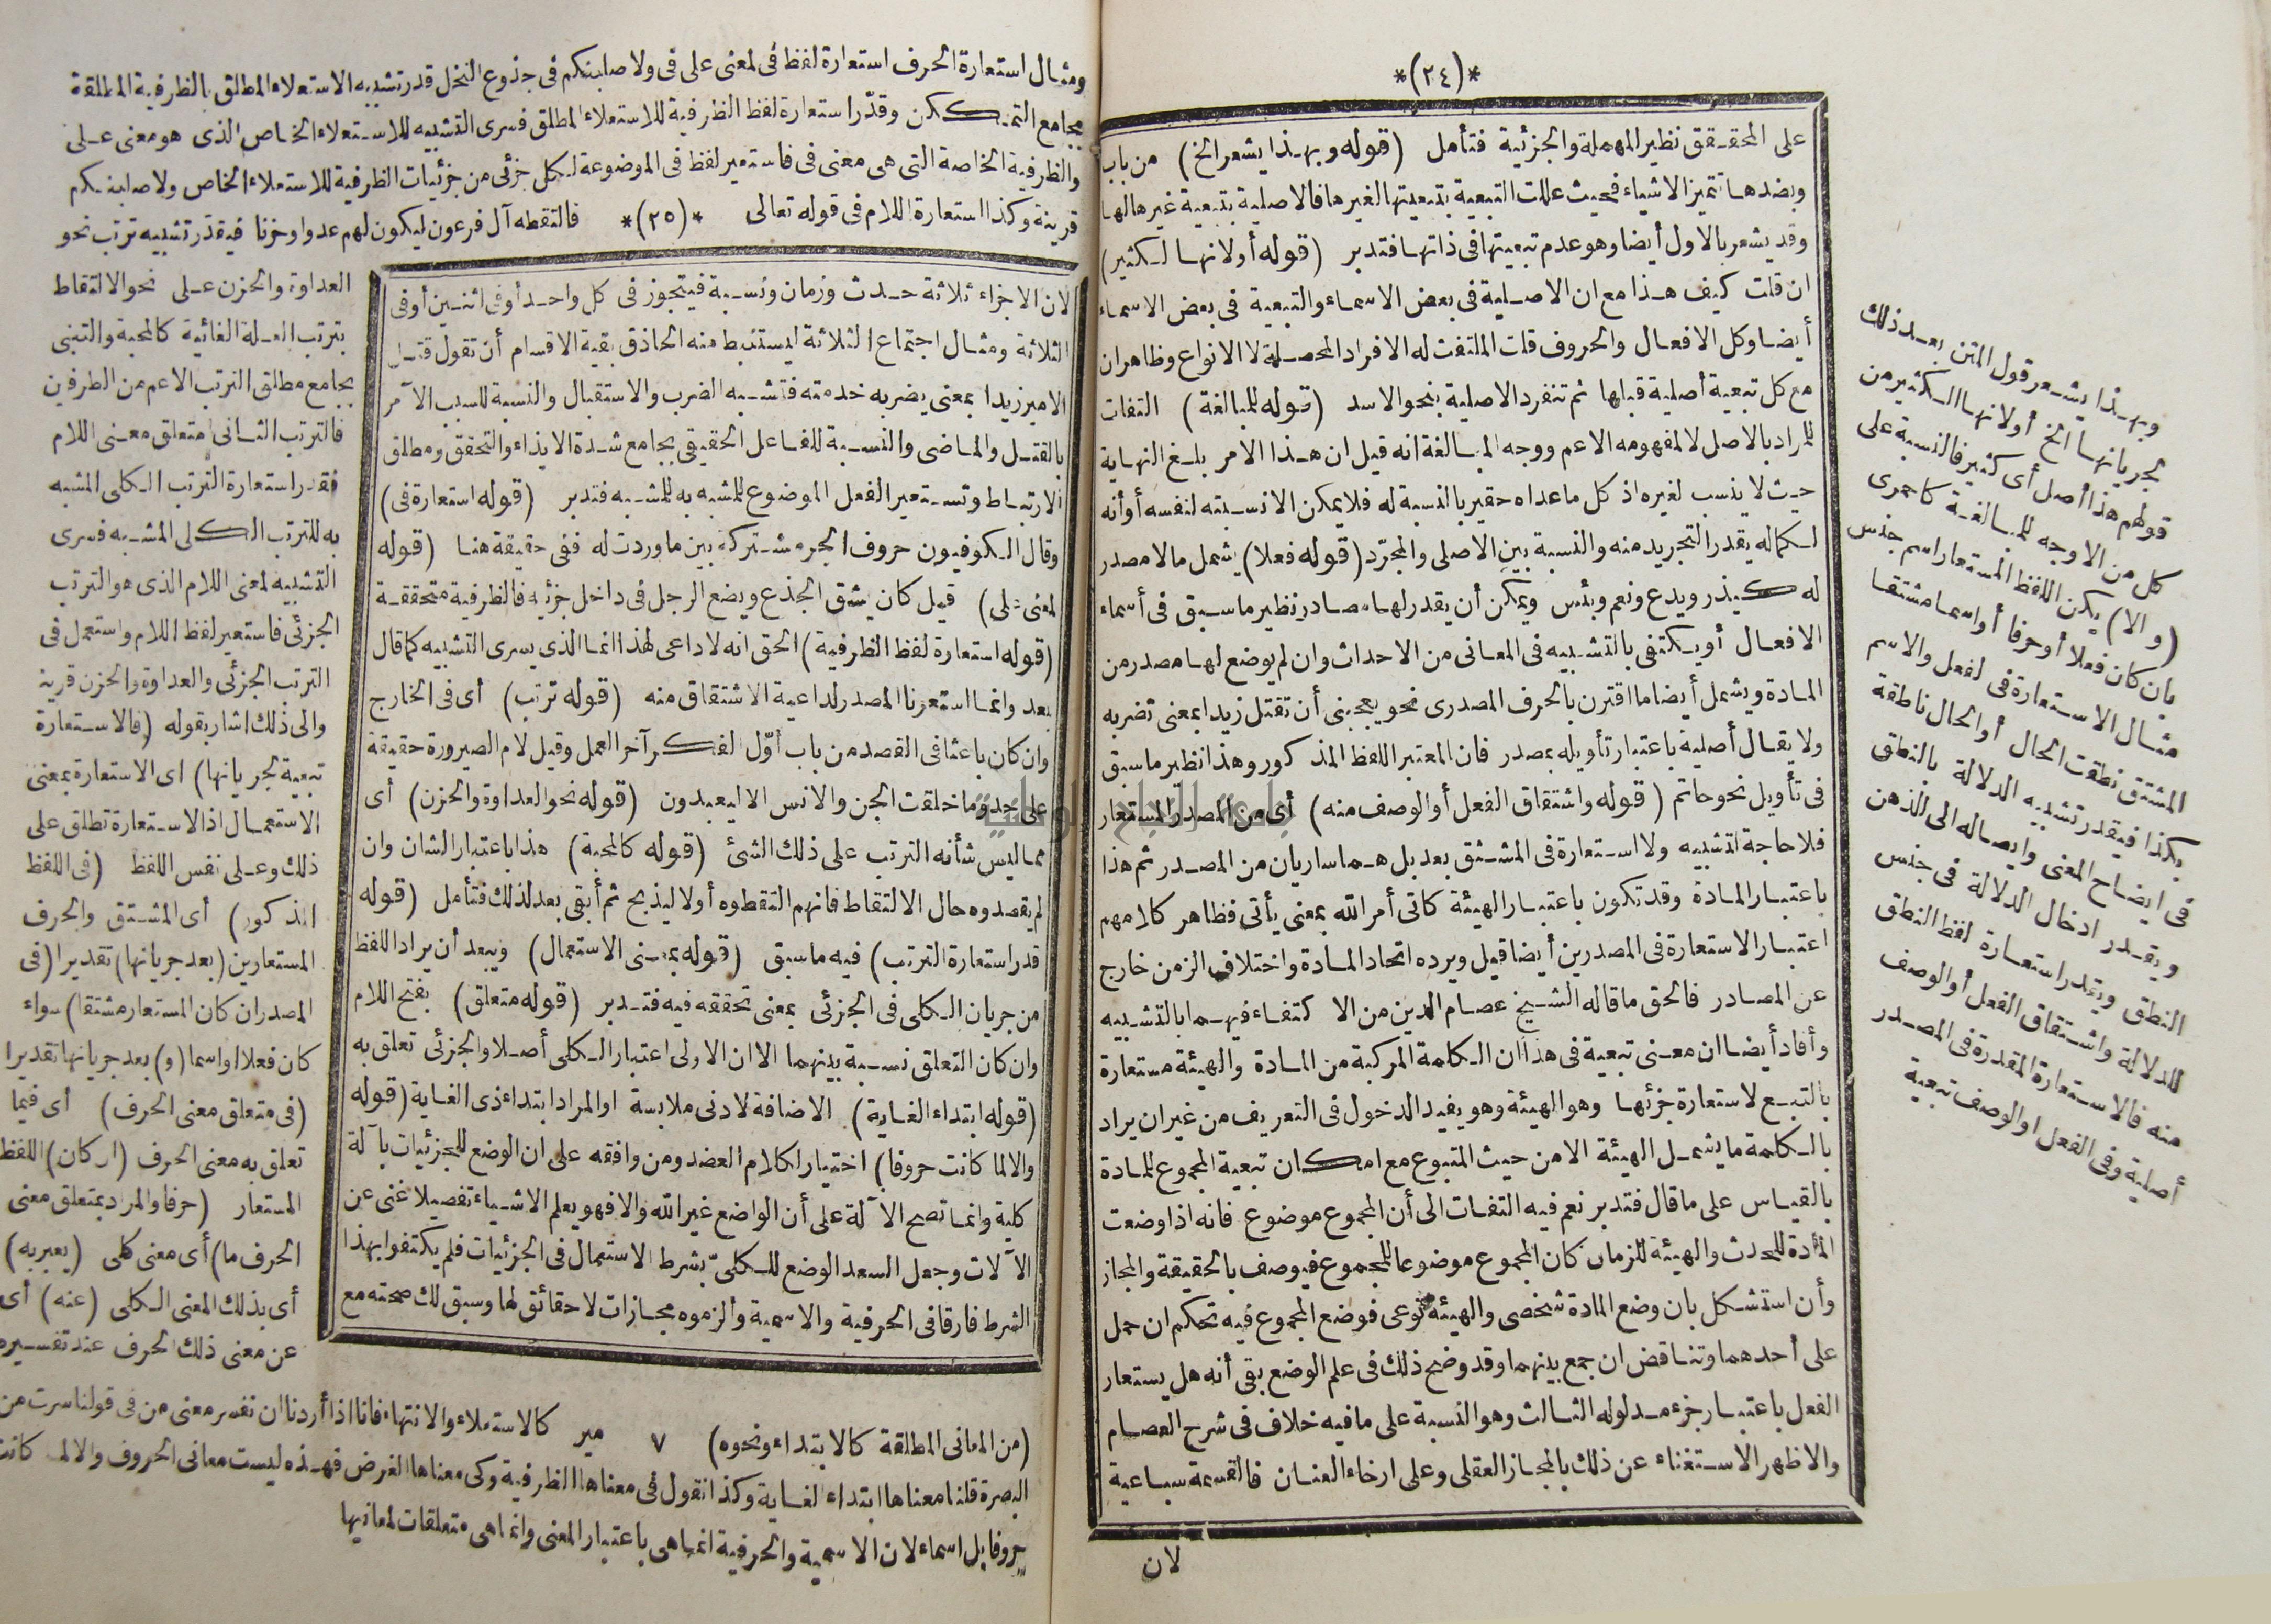 *(٢٤)*
على المحقق نظير المهملة والجزئية فتأمل (قوله وبهذا يشعر الخ) من باب
وبضدها تتميز الاشياء فحيث عللت التبعية بتبعيتها لغيرها فالاصلية بتبعية غيرها لها
وقد يشعر بالاول أيضا وهو عدم تبعيتها فى ذاتها فتدبر (قوله أولانها الكثير)
ان قلت كيف هذا مع ان الاصلية فى بعض الاسماء والتبعية فى بعض الاسماء
أيضا وكل الافعال والحروف قلت الملتفت له الافراد المحصلة لا الانواع وظاهر ان
مع كل تبعية أصلية قبلها ثم تنفرد الاصلية بنحو الاسد (قوله للمبالغة) التفات
للمراد بالاصل لا لمفهومه الاعم ووجه المبالغة انه قيل ان هذا الامر بلغ النهاية
حيث لا ينسب لغيره اذ كل ما عداه حقير بالنسبة له فلا يمكن الا نسبته لنفسه أو أنه
لكماله يقدر التجريد منه والنسبة بين الاصلى والمجرّد (قوله فعلا) يشمل ما لا مصدر
له كيذر ويدع ونعم وبئس ويمكن أن يقدر لها مصادر نظير ما سبق فى أسماء
الافعال أو يكتفى بالتشبيه فى المعانى من الاحداث وان لم يوضع لها مصدر من
المادة ويشمل أيضا ما اقترن بالحرف المصدرى نحو يعجبنى أن تقتل زيدا بمعنى تضربه
ولا يقال أصلية باعتبار تأويله بمصدر فان المعتبر اللفظ المذكور وهذا نظير ما سبق
فى تأويل نحو حاتم (قوله واشتقاق الفعل أو الوصف منه) أى من المصدر المستعار
فلا حاجة لتشبيه ولا استعارة فى المشتق بعد بل هما ساريان من المصدر ثم هذا
باعتبار المادة وقد تكون باعتبار الهيئة كاتى أمر الله بمعنى يأتى فظاهر كلامهم
اعتبار الاستعارة فى المصدرين أيضا قيل ويرده اتحاد المادة واختلاف الزمن خارج
عن المصادر فالحق ما قاله الشيخ عصام الدين من الاكتفاء فيهما بالتشبيه
وأفاد أيضا ان معنى تبعية فى هذا ان الكلمة المركبة من المادة والهيئة مستعارة
بالتبع لاستعارة جزئها وهو الهيئة وهو يفيد الدخول فى التعريف من غير ان يراد
بالكلمة ما يشمل الهيئة الا من حيث المتبوع مع امكان تبعية المجموع للمادة
بالقياس على ما قال فتدبر نعم فيه التفات الى أن المجموع موضوع فانه اذا وضعت
المادة للحدث والهيئة للزمان كان المجموع موضوعا للمجموع فيوصف بالحقيقة والمجاز
وأن استشكل بان وضع المادة شخصى والهيئة نوعى فوضع المجموع فيه تحكم ان حمل
على أحدهما وتناقض ان جمع بينهما وقد وضح ذلك فى علم الوضع بقى أنه هل يستعار
الفعل باعتبار جزء مدلوله الثالث وهو النسبة على ما فيه خلاف فى شرح العصام
والاظهر الاستغناء عن ذلك بالمجاز العقلى وعلى ارخاء العنان فالقسمة سباعية
لان
وبهذا يشعر قول المتن بعد ذلك
لجريانها الخ أولانها الكثير من
قولهم هذا أصل أى كثير فالنسبة على
كل من الاوجه للمبالغة كاحمرى
(والا) يكن اللفظ المستعار اسم جنس
بان كان فعلا أو حرفا أو اسما مشتقا
مثال الاستعارة فى الفعل والاسم
المشتق نطقت الحال أو الحال ناطقة
بكذا فيقدر تشبيه الدلالة بالنطق
فى ايضاح المعنى وايصاله الى الذهن
ويقدر ادخال الدلالة فى جنس
النطق ويقدر استعارة لفظ النطق
للدلالة واشتقاق الفعل أو الوصف
منه فالاستعارة المقدرة فى المصدر
أصلية وفى الفعل او الوصف تبعية
ومثال استعارة الحرف استعارة لفظ فى لمعنى على فى ولاصلبنكم فى جذوع النخل قدر تشبيه الاستعلاء المطلق بالظرفية المطلقة
بجامع التمكن وقدّر استعارة لفظ الظرفية للاستعلاء المطلق فسرى التشبيه للاستعلاء الخاص الذى هو معنى على
والظرفية الخاصة التى هى معنى فى فاستعير لفظ فى الموضوعة لكل جزئى من جزئيات الظرفية للاستعلاء الخاص ولاصلبنكم
قرينة وكذا استعارة اللام فى قوله تعالى *(٢٥)* فالتقطه آل فرعون ليكون لهم عدوا وحزنا فيقدر تشبيه ترتب نحو
العداوة والحزن على نحو الالتقاط
بترتب العلة الغائية كالمحبة والتبنى
بجامع مطلق الترتب الاعم من الطرفين
فالترتب الثانى متعلق معنى اللام
فقدر استعارة الترتب الكلى المشبه
به للترتب الكلى المشبه فسرى
التشبيه لمعنى اللام الذى هو الترتب
الجزئى فاستعير لفظ اللام واستعمل فى
الترتب الجزئى والعداوة والحزن قرينة
والى ذلك اشار بقوله (فالاستعارة
تبعية لجريانها) اى الاستعارة بمعنى
الاستعمال اذ الاستعارة تطلق على
ذلك وعلى نفس اللفظ (فى اللفظ
المذكور) أى المشتق والحرف
المستعارين (بعد جريانها) تقديرا (فى
المصدر ان كان المستعار مشتقا) سواء
كان فعلا او اسما (و) بعد جريانها تقديرا
(فى متعلق معنى الحرف) أى فيما
تعلق به معنى الحرف (ان كان) اللفظ
المستعار (حرفا والمراد بمتعلق معنى
الحرف ما) أى معنى كلى (يعبر به)
أى بذلك المعنى الكلى (عنه) أى
عن معنى ذلك الحرف عند تفسيره
لان الاجزاء ثلاثة حدث وزمان ونسبة فيتجوز فى كل واحد أو فى اثنين أو فى
الثلاثة ومثال اجتماع الثلاثة ليستنبط منه الحاذق بقية الاقسام أن تقول قتل
الامير زيدا بمعنى يضربه خدمته فتشبه الضرب والاستقبال والنسبة للسبب الآمر
بالقتل والماضى والنسبة للفاعل الحقيقى بجامع شدة الايذاء والتحقق ومطلق
الارتباط وتستعير الفعل الموضوع للمشبه به للمشبه فتدبر (قوله استعارة فى)
وقال الكوفيون حروف الجر مشتركة بين ما وردت له ففى حقيقة هنا (قوله
لمعنى على) قيل كان يشق الجذع ويضع الرجل فى داخل جزئيه فالظرفية متحققة
(قوله استعارة لفظ الظرفية) الحق انه لا داعى لهذا انما الذى يسرى التشبيه كما قال
بعد وانما استعرنا المصدر لداعية الاشتقاق منه (قوله ترتب) أى فى الخارج
وان كان باعثا فى القصد من باب أوّل الفكر آخر العمل وقيل لام الصيرورة حقيقة
على حدّ وما خلقت الجن والانس الا ليعبدون (قوله نحو العداوة والحزن) أى
مما ليس شأنه الترتب على ذلك الشئ (قوله كالمحبة) هذا باعتبار الشان وان
لم يقصدوه حال الالتقاط فانهم التقطوه أولا ليذبح ثم أبقى بعد لذلك فتأمل (قوله
قدر استعارة الترتب) فيه ما سبق (قوله بمعنى الاستعمال) ويبعد أن يراد اللفظ
من جريان الكلى فى الجزئى بمعنى تحققه فيه فتدبر (قوله متعلق) بفتح اللام
وان كان التعلق نسبة بينهما الا ان الاولى اعتبار الكلى أصلا والجزئى تعلق به
(قوله ابتداء الغاية) الاضافة لادنى ملابسة او المراد ابتداء ذى الغاية (قوله
والا لما كانت حروفا) اختيارا لكلام العضد ومن وافقه على ان الوضع للجزئيات بآلة
كلية وانما تصح الآلة على أن الواضع غير الله والا فهو يعلم الاشياء تفصيلا غنى عن
الآلات وجعل السعد الوضع للكلىّ بشرط الاستعمال فى الجزئيات فلم يكتفوا بهذا
الشرط فارقا فى الحرفية والاسمية وألزموه مجازات لا حقائق لها وسبق لك صحته مع
(من المعانى المطلقة كالابتداء ونحوه) ٧ مير كالاستعلاء والانتهاء فانا اذا أردنا ان نفسر معنى من فى قولنا سرت من
البصرة قلنا معناها ابتداء الغاية وكذا نقول فى معناها الظرفية وكى معناها الغرض فهذه ليست معانى الحروف والا لما كانت
حروفا بل اسماء لان الاسمية والحرفية انما هى باعتبار المعنى وانما هى متعلقات لمعانيها